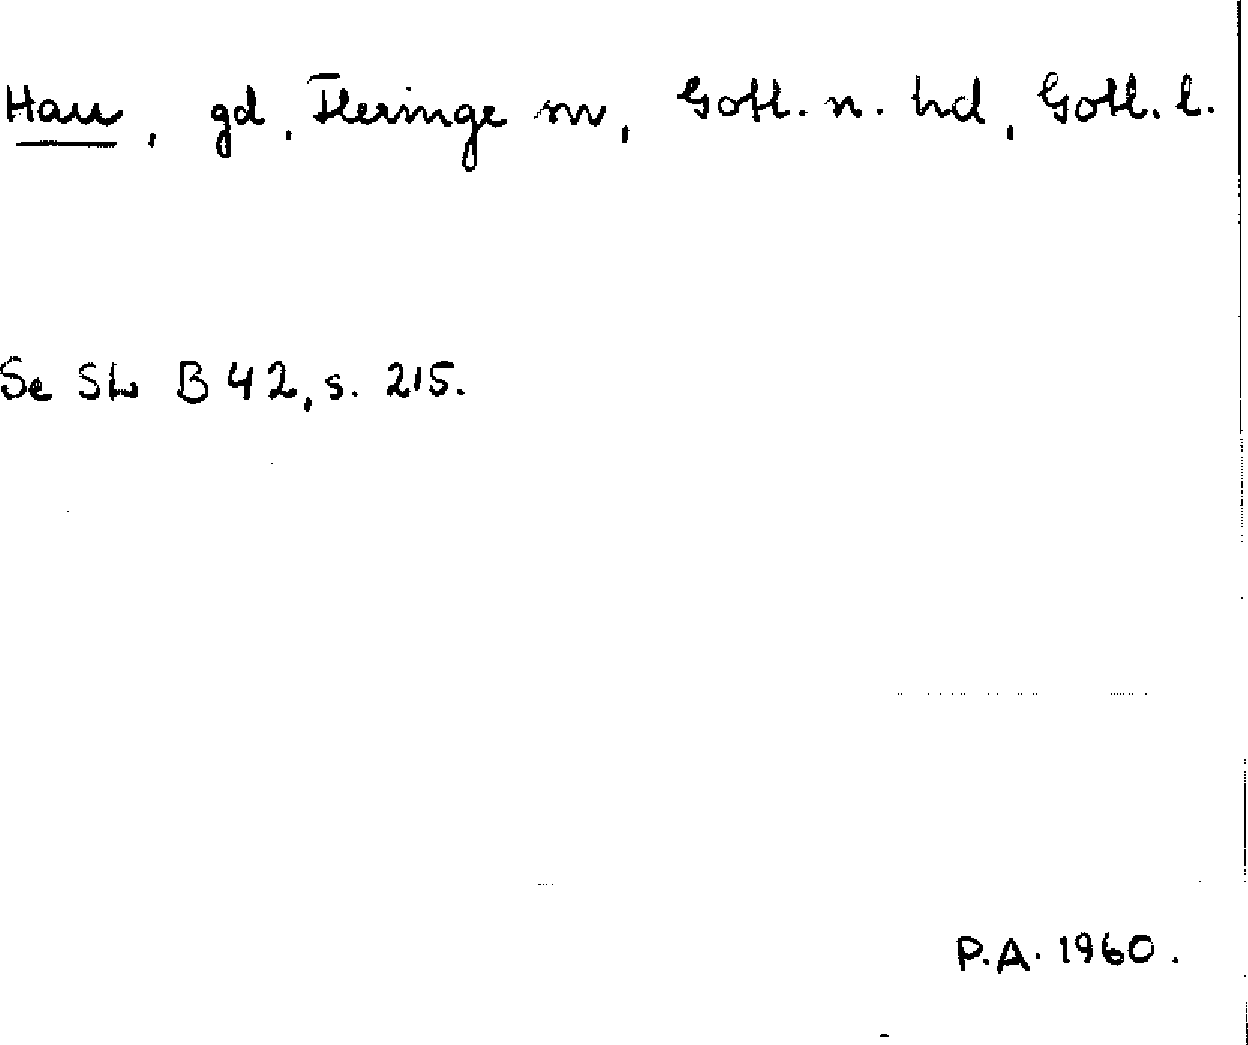 Hau, gd, Fleringe sn, Gotl. n. hd, Gotl. l.
Se SL B 42, s. 215.
P.A. 1960.